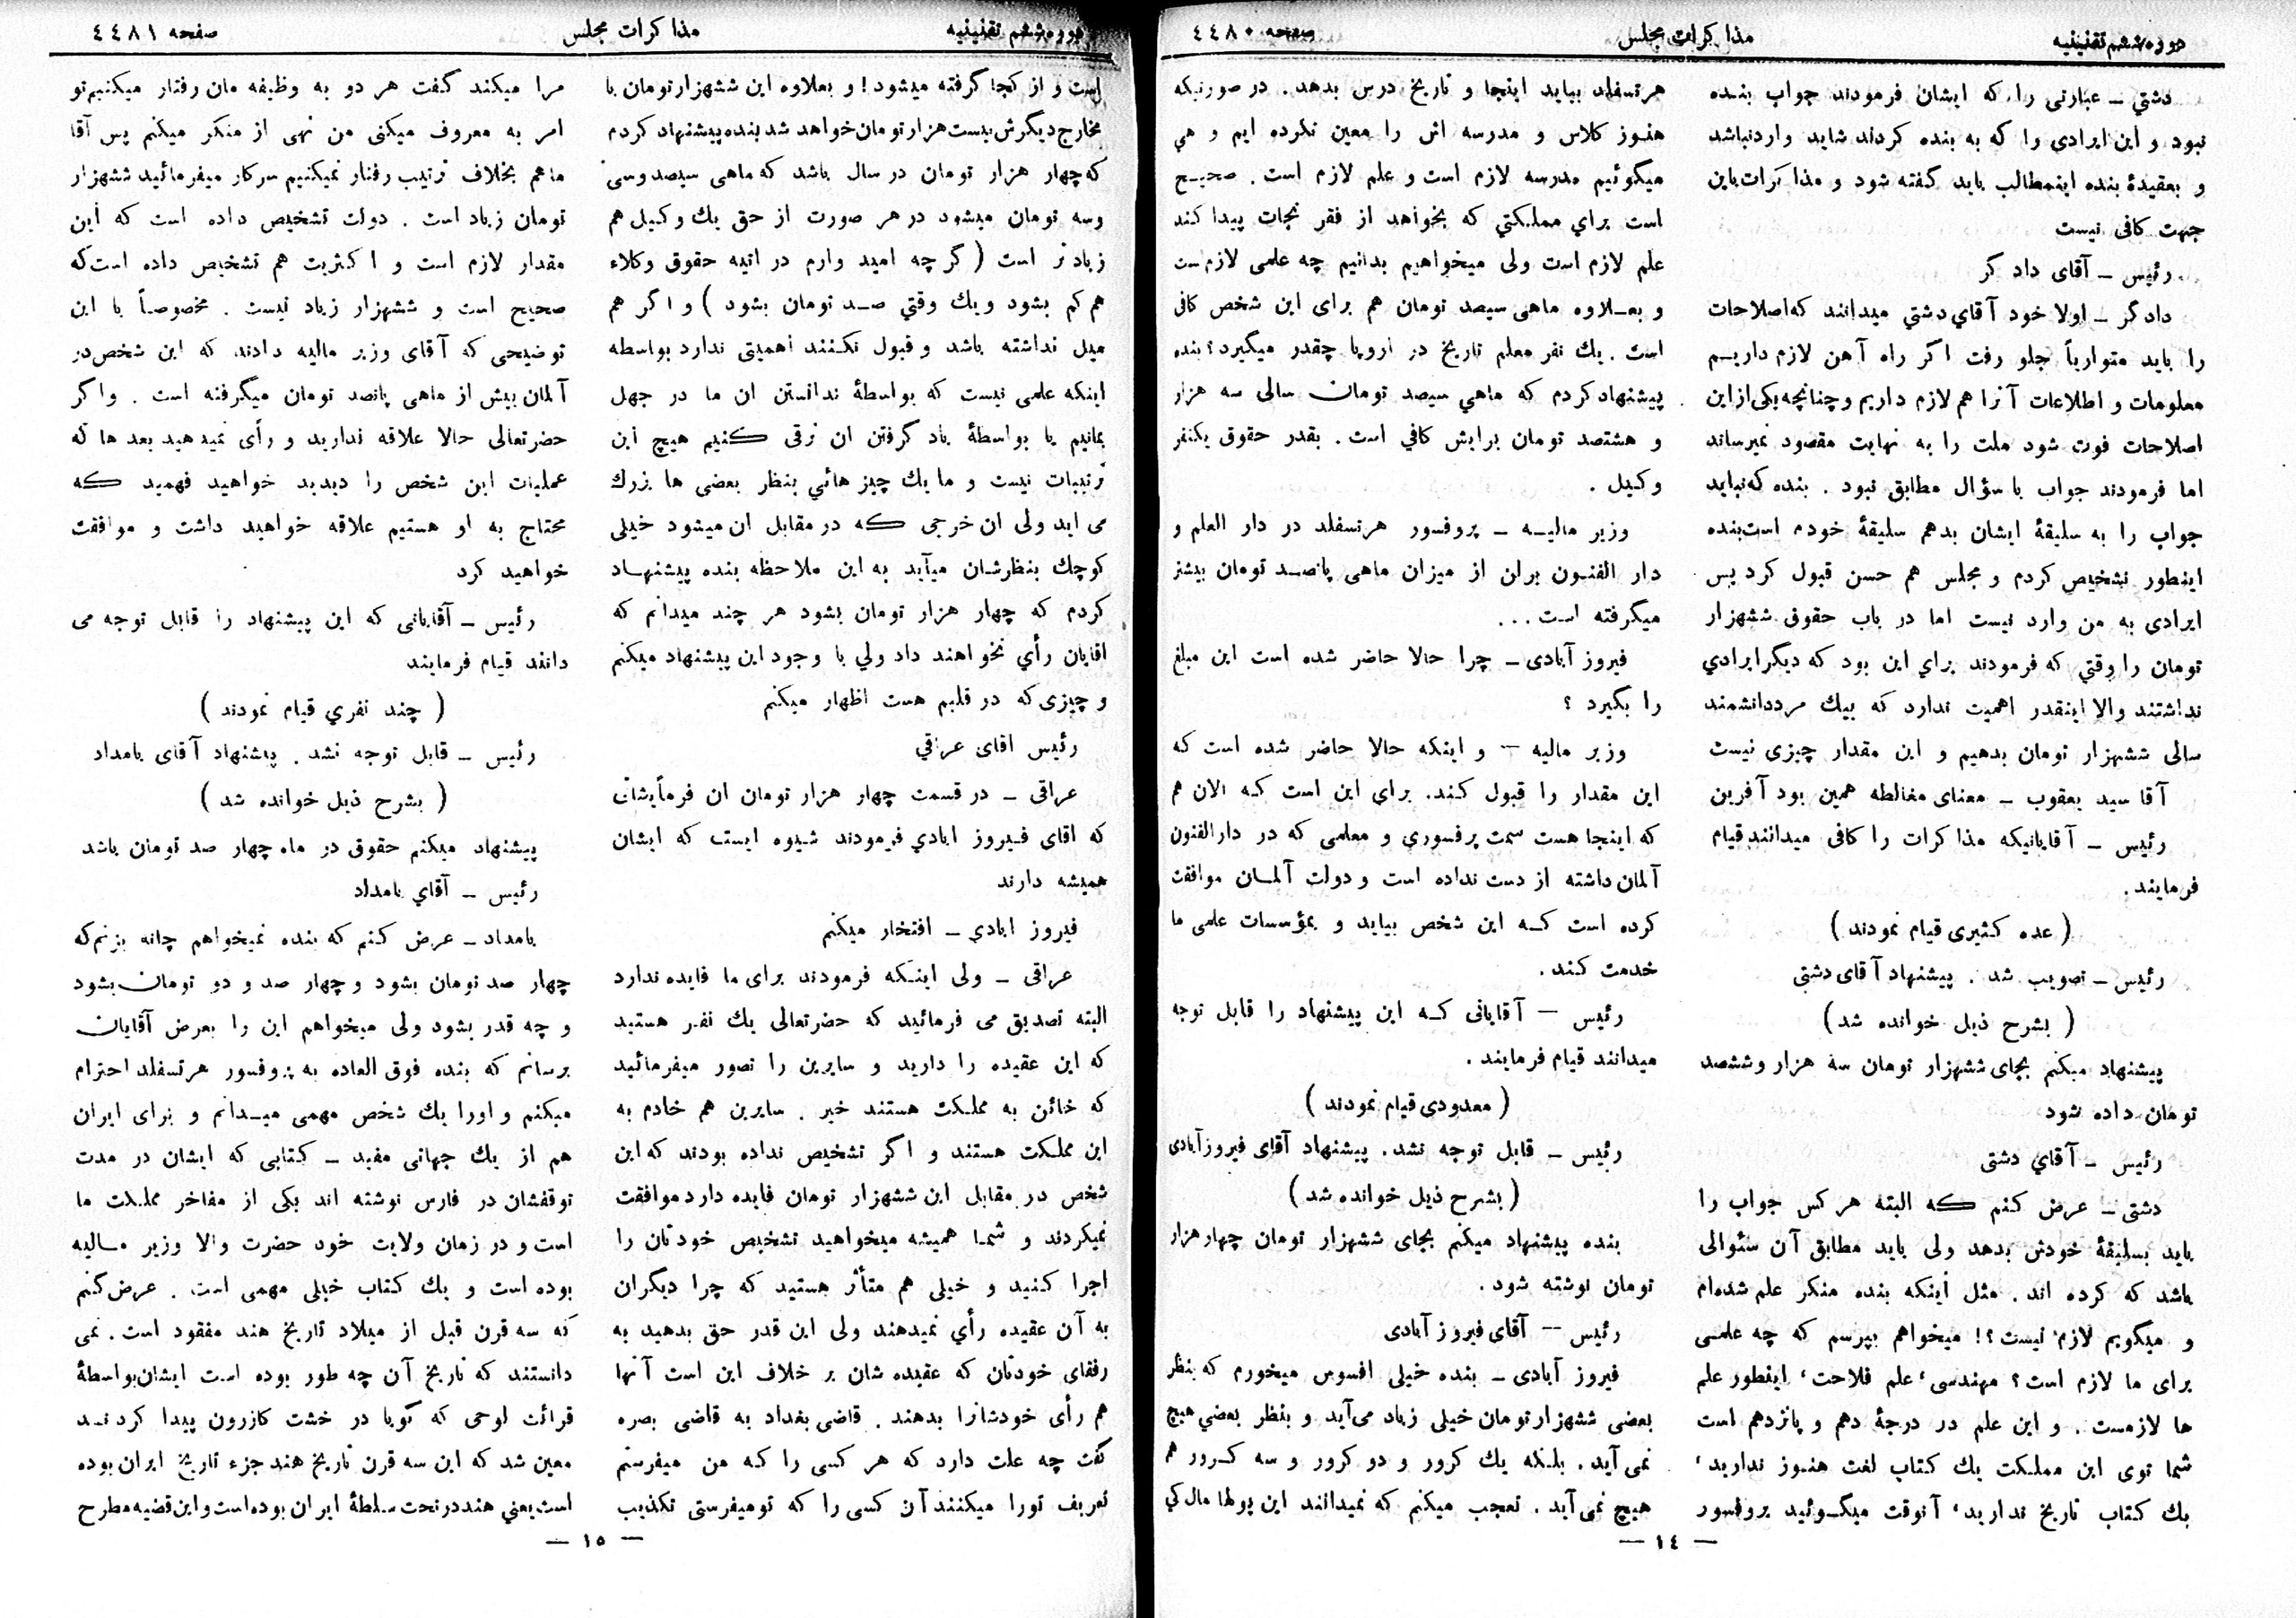 دوره ششم تقنینیه
مذاکرات مجلس
صفحه ۴۴۸۰
دشتي ـ عبارتی را که ایشان فرمودند جواب بنده
نبود و این ایرادی را که به بنده کردند شاید وارد نباشد
و بعقیدهٔ بنده اینمطالب باید گفته شود و مذاکرات باین
جهت کافی نیست
رئیس ـ آقای دادگر
دادگر ـ اولا خود آقاي دشتي میدانند که اصلاحات
را باید متواریاً جلو رفت اگر راه آهن لازم داریم
معلومات و اطلاعات آنرا هم لازم داریم و چنانچه یکی از این
اصلاحات فوت شود ملت را به نهایت مقصود نمیرساند
اما فرمودند جواب با سؤال مطابق نبود . بنده که نباید
جواب را به سلیقهٔ ایشان بدهم سلیقهٔ خودم است بنده
اینطور تشخیص کردم و مجلس هم حسن قبول کرد پس
ایرادی به من وارد نیست اما در باب حقوق ششهزار
تومان را وقتي که فرمودند براي این بود که دیگر ایرادي
نداشتند والا اینقدر اهمیت ندارد که بیك مرد دانشمند
سالی ششهزار تومان بدهیم و این مقدار چیزی نیست
آقا سید یعقوب ـ معنای مغالطه همین بود آفرین
رئیس ـ آقایانیکه مذاکرات را کافی میدانند قیام
فرمایند .
( عده کثیری قیام نمودند )
رئیس ـ تصویب شد . پیشنهاد آقای دشتی
( بشرح ذیل خوانده شد )
پیشنهاد میکنم بجای ششهزار تومان سه هزار و ششصد
تومان داده شود
رئیس ـ آقاي دشتی
دشتی ـ عرض کنم که البته هر کس جواب را
باید بسلیقهٔ خودش بدهد ولی باید مطابق آن سئوالی
باشد که کرده اند . مثل اینکه بنده منکر علم شده‌ام
و میگویم لازم نیست ؟! میخواهم بپرسم که چه علمی
برای ما لازم است ؟ مهندسی ، علم فلاحت ، اینطور علم
ها لازمست . و این علم در درجهٔ دهم و پانزدهم است
شما توی این مملکت یك کتاب لغت هنوز ندارید ،
یك کتاب تاریخ ندارید ، آنوقت میگوئید پروفسور
هرتسفلد بیاید اینجا و تاریخ درس بدهد . در صورتیکه
هنوز کلاس و مدرسه اش را معین نکرده ایم و هي
میگوئیم مدرسه لازم است و علم لازم است . صحیح
است براي مملکتي که بخواهد از فقر نجات پیدا کند
علم لازم است ولی میخواهیم بدانیم چه علمی لازمست
و بعلاوه ماهی سیصد تومان هم برای این شخص کافی
است . یك نفر معلم تاریخ در اروپا چقدر میگیرد ؟ بنده
پیشنهاد کردم که ماهي سیصد تومان سالی سه هزار
و هشتصد تومان برایش کافي است . بقدر حقوق یکنفر
وکیل .
وزیر مالیه ـ پروفسور هرتسفلد در دار العلم و
دار الفنون برلن از میزان ماهی پانصد تومان بیشتر
میگرفته است ...
فیروز آبادی ـ چرا حالا حاضر شده است این مبلغ
را بگیرد ؟
وزیر مالیه ـ و اینکه حالا حاضر شده است که
این مقدار را قبول کند . برای این است که الان هم
که اینجا هست سمت پرفسوري و معلمی که در دارالفنون
آلمان داشته از دست نداده است و دولت آلمان موافقت
کرده است که این شخص بیاید و بمؤسسات علمی ما
خدمت کند .
رئیس ـ آقایانی که این پیشنهاد را قابل توجه
میدانند قیام فرمایند .
( معدودی قیام نمودند )
رئیس ـ قابل توجه نشد . پیشنهاد آقای فیروزآبادی
( بشرح ذیل خوانده شد )
بنده پیشنهاد میکنم بجای ششهزار تومان چهار هزار
تومان نوشته شود .
رئیس ـ آقای فیروز آبادی
فیروز آبادی ـ بنده خیلی افسوس میخورم که بنظر
بعضی ششهزار تومان خیلی زیاد می‌آید و بنظر بعضي هیچ
نمی آید . بلکه یك کرور و دو کرور و سه کرور هم
هیچ نمی آید . تعجب میکنم که نمیدانند این پولها مال کي
ـ ۱۴ ـ
دوره ششم تقنینیه
مذاکرات مجلس
صفحه ۴۴۸۱
است و از کجا گرفته میشود ! و بعلاوه این ششهزار تومان با
مخارج دیگرش بیست هزار تومان خواهد شد بنده پیشنهاد کردم
که چهار هزار تومان در سال باشد که ماهی سیصد و سی
و سه تومان میشود در هر صورت از حق یك وکیل هم
زیادتر است ( گر چه امید وارم در اتیه حقوق وکلاء
هم کم بشود و یك وقتي صد تومان بشود ) و اگر هم
میل نداشته باشد و قبول نکنند اهمیتی ندارد بواسطه
اینکه علمی نیست که بواسطهٔ ندانستن ان ما در جهل
بمانیم یا بواسطهٔ یاد گرفتن ان ترقی کنیم هیچ این
ترتیبات نیست و ما یك چیز هائي بنظر بعضی ها بزرك
می اید ولی ان خرجی که در مقابل ان میشود خیلی
کوچك بنظرشان میآید به این ملاحظه بنده پیشنهاد
کردم که چهار هزار تومان بشود هر چند میدانم که
اقایان رأي نخواهند داد ولي با وجود این پیشنهاد میکنم
و چیزی که در قلبم هست اظهار میکنم
رئیس اقای عراقي
عراقی ـ در قسمت چهار هزار تومان ان فرمایشاتی
که اقای فیروز ابادي فرمودند شیوه ایست که ایشان
همیشه دارند
فیروز ابادي ـ افتخار میکنم
عراقی ـ ولی اینکه فرمودند برای ما فایده ندارد
البته تصدیق می فرمائید که حضرتعالی یك نفر هستید
که این عقیده را دارید و سایرین را تصور میفرمائید
که خائن به مملکت هستند خیر . سایرین هم خادم به
این مملکت هستند و اگر تشخیص نداده بودند که این
شخص در مقابل این ششهزار تومان فایده دارد موافقت
نمیکردند و شما همیشه میخواهید تشخیص خودتان را
اجرا کنید و خیلی هم متأثر هستید که چرا دیگران
به آن عقیده رأي نمیدهند ولی این قدر حق بدهید به
رفقای خودتان که عقیده شان بر خلاف این است آنها
هم رأی خودشانرا بدهند . قاضی بغداد به قاضی بصره
گفت چه علت دارد که هر کسی را که من میفرستم
تعریف تورا میکنند آن کسی را که تو میفرستی تکذیب
مرا میکند گفت هر دو به وظیفه مان رفتار میکنیم تو
امر به معروف میکنی من نهی از منکر میکنم پس آقا
ما هم بخلاف ترتیب رفتار نمیکنیم سرکار میفرمائید ششهزار
تومان زیاد است . دولت تشخیص داده است که این
مقدار لازم است و اکثریت هم تشخیص داده است که
صحیح است و ششهزار زیاد نیست . مخصوصاً با این
توضیحی که آقای وزیر مالیه دادند که این شخص در
آلمان بیش از ماهی پانصد تومان میگرفته است . و اگر
حضرتعالی حالا علاقه ندارید و رأی نمیدهید بعد ها که
عملیات این شخص را دیدید خواهید فهمید که
محتاج به او هستیم علاقه خواهید داشت و موافقت
خواهید کرد
رئیس ـ آقایانی که این پیشنهاد را قابل توجه می
دانند قیام فرمایند
( چند نفري قیام نمودند )
رئیس ـ قابل توجه نشد . پیشنهاد آقای بامداد
( بشرح ذیل خوانده شد )
پیشنهاد میکنم حقوق در ماه چهار صد تومان باشد
رئیس ـ آقاي بامداد
بامداد ـ عرض کنم که بنده نمیخواهم چانه بزنم که
چهار صد تومان بشود و چهار صد و دو تومان بشود
و چه قدر بشود ولی میخواهم این را بعرض آقایان
برسانم که بنده فوق العاده به پروفسور هرتسفلد احترام
میکنم و اورا یك شخص مهمی میدانم و برای ایران
هم از یك جهاتی مفید ـ کتابی که ایشان در مدت
توقفشان در فارس نوشته اند یکی از مفاخر مملکت ما
است و در زمان ولایت خود حضرت والا وزیر مالیه
بوده است و یك کتاب خیلی مهمی است . عرض کنم
که سه قرن قبل از میلاد تاریخ هند مفقود است . نمی
دانستند که تاریخ آن چه طور بوده است ایشان بواسطهٔ
قرائت لوحی که گویا در خشت کازرون پیدا کردند
معین شد که این سه قرن تاریخ هند جزء تاریخ ایران بوده
است یعني هند در تحت سلطهٔ ایران بوده است و این قضیه مطرح
ـ ۱۵ ـ